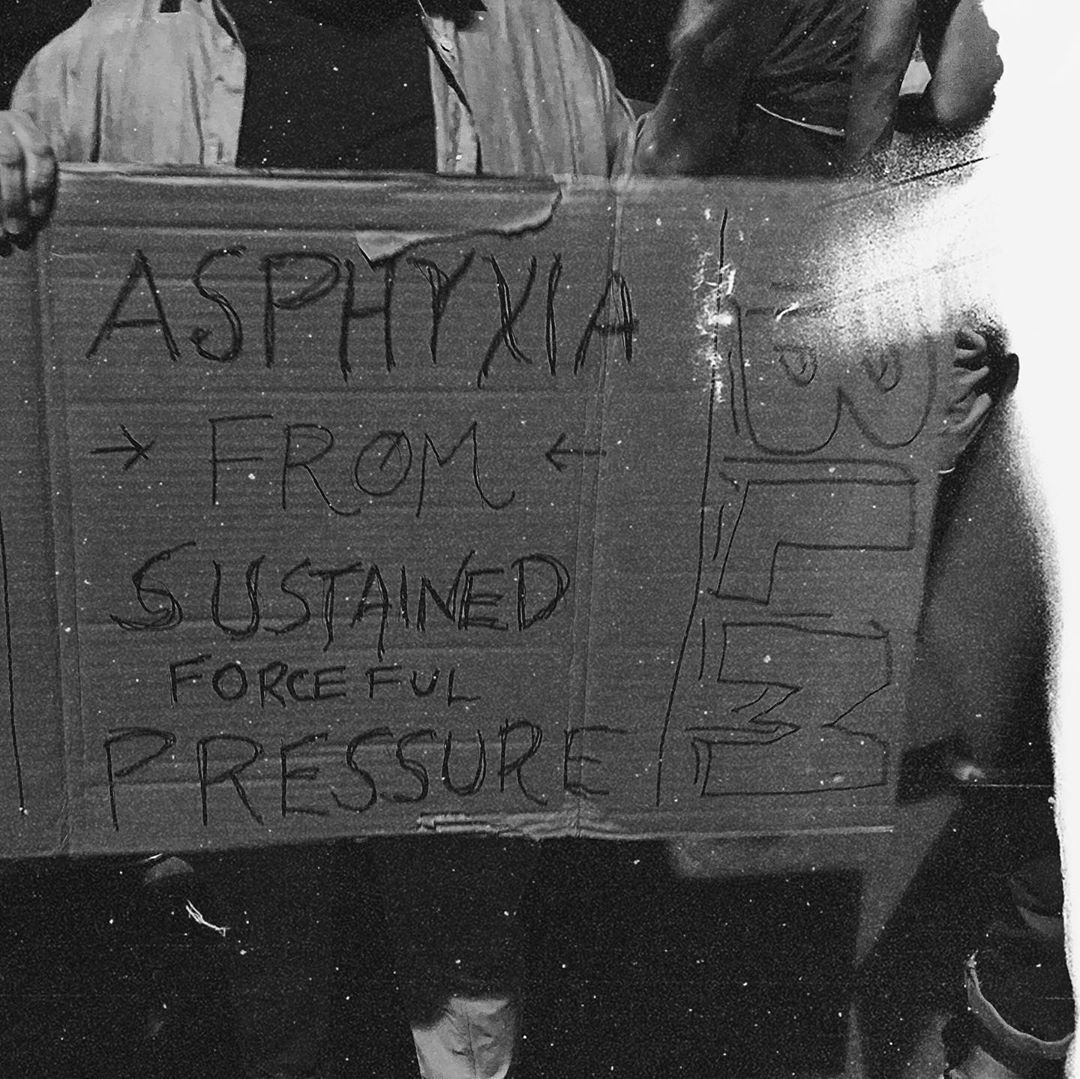 ASPHYXIA
→ FROM ←
SUSTAINED
FORCEFUL
PRESSURE
BLM